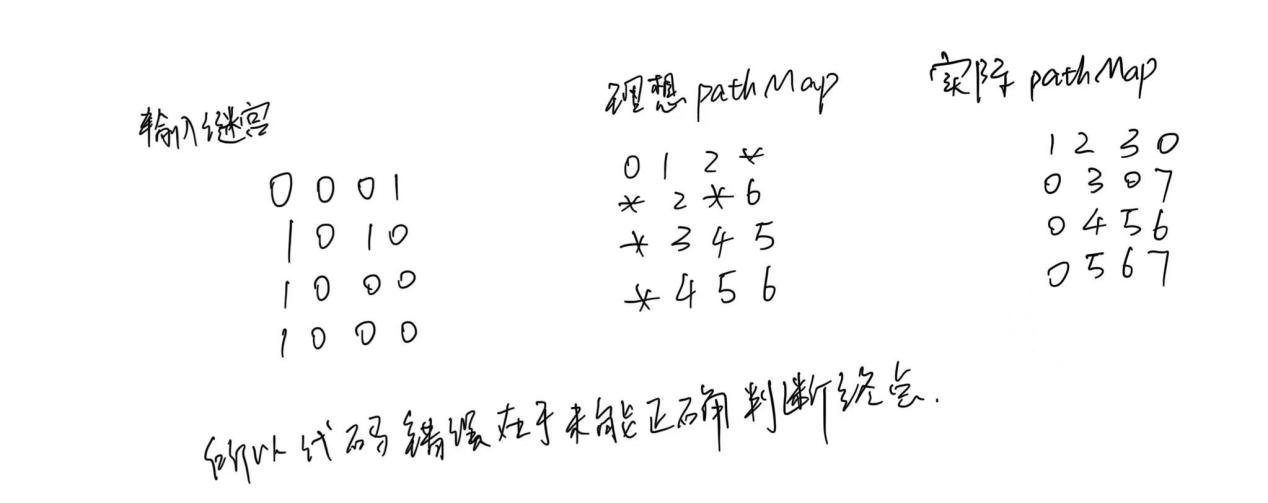 输入迷宫
0 0 0 1
1 0 1 0
1 0 0 0
1 0 0 0
理想 pathMap
0 1 2 *
* 2 * 6
* 3 4 5
* 4 5 6
实际 pathMap
1 2 3 0
0 3 0 7
0 4 5 6
0 5 6 7
所以代码错误在于未能正确判断终点.